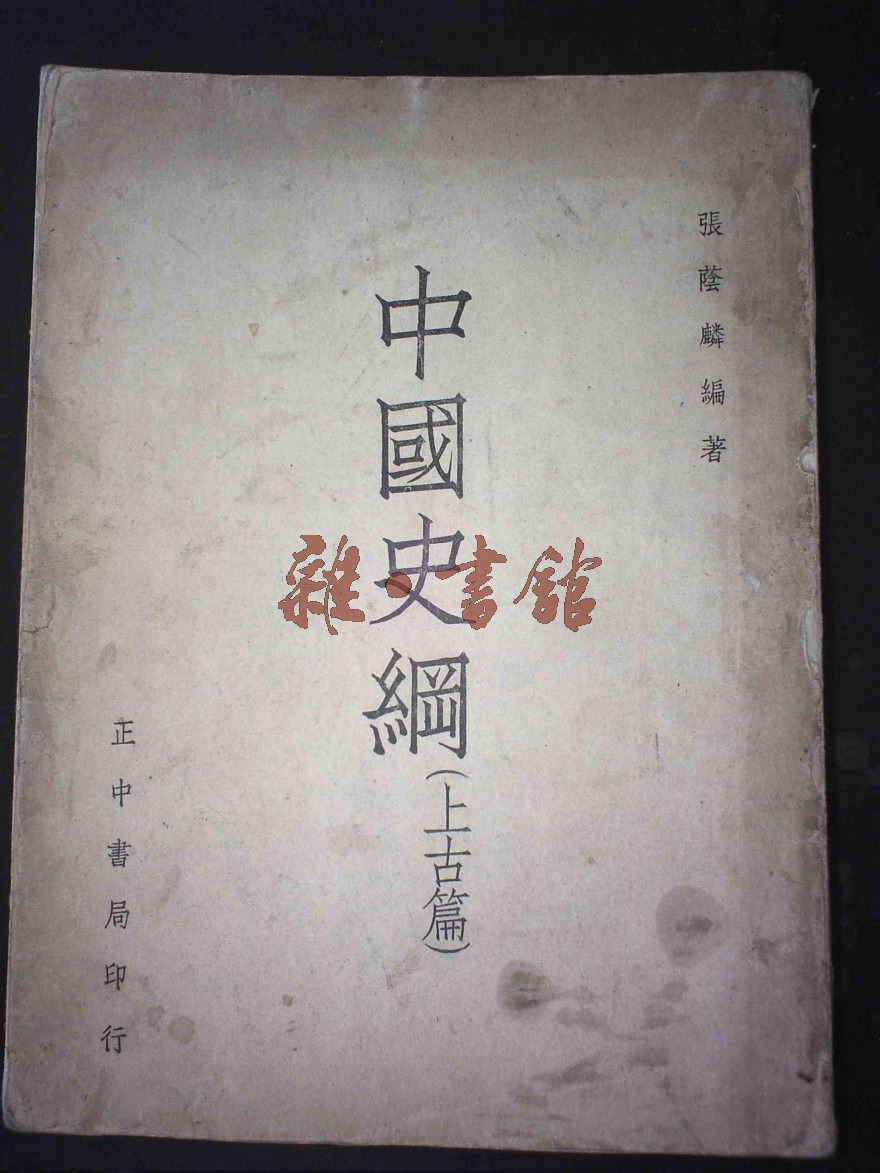 張蔭麟編著
中國史綱(上古篇)
正中書局印行
雜·書館